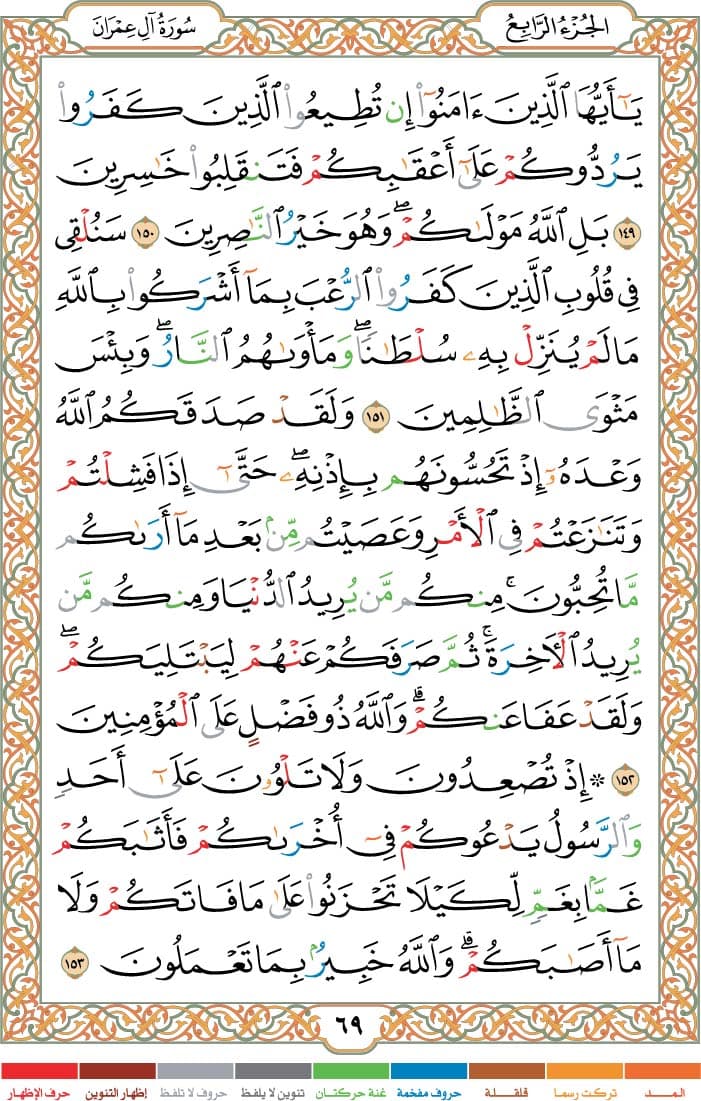 الجُزْءُ الرَّابِعُ
سُورَةُ آلِ عِمْرَانَ
يَٰٓأَيُّهَا ٱلَّذِينَ ءَامَنُوٓا۟ إِن تُطِيعُوا۟ ٱلَّذِينَ كَفَرُوا۟
يَرُدُّوكُمْ عَلَىٰٓ أَعْقَٰبِكُمْ فَتَنقَلِبُوا۟ خَٰسِرِينَ
١٤٩ بَلِ ٱللَّهُ مَوْلَىٰكُمْ ۖ وَهُوَ خَيْرُ ٱلنَّٰصِرِينَ ١٥٠ سَنُلْقِى
فِى قُلُوبِ ٱلَّذِينَ كَفَرُوا۟ ٱلرُّعْبَ بِمَآ أَشْرَكُوا۟ بِٱللَّهِ
مَا لَمْ يُنَزِّلْ بِهِۦ سُلْطَٰنًا ۖ وَمَأْوَىٰهُمُ ٱلنَّارُ ۖ وَبِئْسَ
مَثْوَى ٱلظَّٰلِمِينَ ١٥١ وَلَقَدْ صَدَقَكُمُ ٱللَّهُ
وَعْدَهُۥٓ إِذْ تَحُسُّونَهُم بِإِذْنِهِۦ ۖ حَتَّىٰٓ إِذَا فَشِلْتُمْ
وَتَنَٰزَعْتُمْ فِى ٱلْأَمْرِ وَعَصَيْتُم مِّنۢ بَعْدِ مَآ أَرَىٰكُم
مَّا تُحِبُّونَ ۚ مِنكُم مَّن يُرِيدُ ٱلدُّنْيَا وَمِنكُم مَّن
يُرِيدُ ٱلْءَاخِرَةَ ۚ ثُمَّ صَرَفَكُمْ عَنْهُمْ لِيَبْتَلِيَكُمْ ۖ
وَلَقَدْ عَفَا عَنكُمْ ۗ وَٱللَّهُ ذُو فَضْلٍ عَلَى ٱلْمُؤْمِنِينَ
١٥٢ ۞ إِذْ تُصْعِدُونَ وَلَا تَلْوُۥنَ عَلَىٰٓ أَحَدٍ
وَٱلرَّسُولُ يَدْعُوكُمْ فِىٓ أُخْرَىٰكُمْ فَأَثَٰبَكُمْ
غَمًّۢا بِغَمٍّ لِّكَيْلَا تَحْزَنُوا۟ عَلَىٰ مَا فَاتَكُمْ وَلَا
مَآ أَصَٰبَكُمْ ۗ وَٱللَّهُ خَبِيرٌۢ بِمَا تَعْمَلُونَ ١٥٣
٦٩
المـــد تركت رسما قلقـلة حروف مفخمة غنة حركتان تنوين لا يلفظ حروف لا تلفظ إظهار التنوين حرف الإظهار